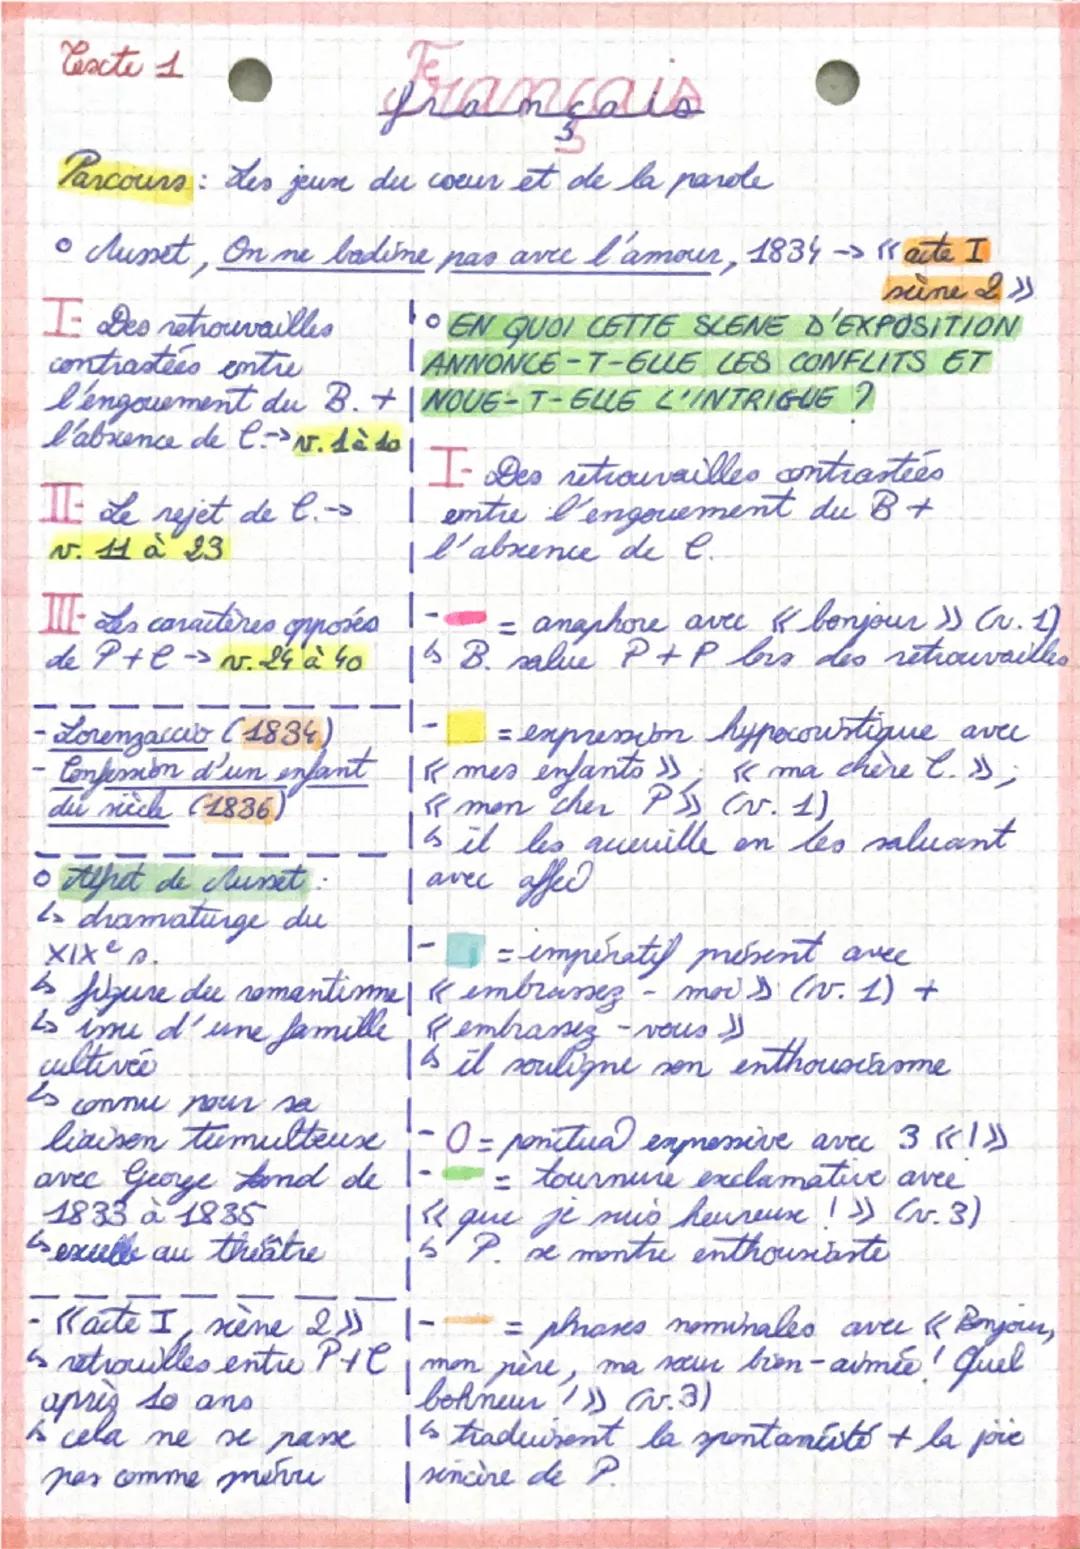 Texte 1
Français
Parcours : Les jeux du coeur et de la parole
° Musset, On ne badine pas avec l'amour, 1834 -> « acte I
scène 2 »
I- Des retrouvailles
contrastées entre
l'engouement du B. +
l'absence de C. -> v. 1 à 10
II- Le rejet de C. ->
v. 11 à 23
III- Les caractères opposés
de P + C -> v. 24 à 40
- Lorenzaccio (1834)
- Confession d'un enfant
du siècle (1836)
° Alfred de Musset :
↳ dramaturge du
XIXe s.
↳ figure du romantisme
↳ issu d'une famille
cultivée
↳ connu pour sa
liaison tumulteuse
avec George Sand de
1833 à 1835
↳ excelle au théâtre
- « acte I, scène 2 »
↳ retrouilles entre P + C
après 10 ans
↳ cela ne se passe
pas comme prévu
° EN QUOI CETTE SCENE D'EXPOSITION
ANNONCE-T-ELLE LES CONFLITS ET
NOUE-T-ELLE L'INTRIGUE ?
I- Des retrouvailles contrastées
entre l'engouement du B +
l'absence de C.
- = anaphore avec « bonjour » (v. 1)
↳ B. salue P + P lors des retrouvailles
- = expression hypocoristique avec
« mes enfants » ; « ma chère C. » ;
« mon cher P » (v. 1)
↳ il les accueille en les saluant
avec affec°
- = impératif présent avec
« embrassez-moi » (v. 1) +
« embrassez-vous »
↳ il souligne son enthousiasme
- O = ponctua° expressive avec 3 « ! »
- = tournure exclamative avec
« que je suis heureux ! » (v. 3)
↳ P. se montre enthousiaste
- = phrases nominales avec « Bonjour,
mon père, ma sœur bien-aimée ! Quel
bohneur ! » (v. 3)
↳ traduisent la spontanéité + la joie
sincère de P.